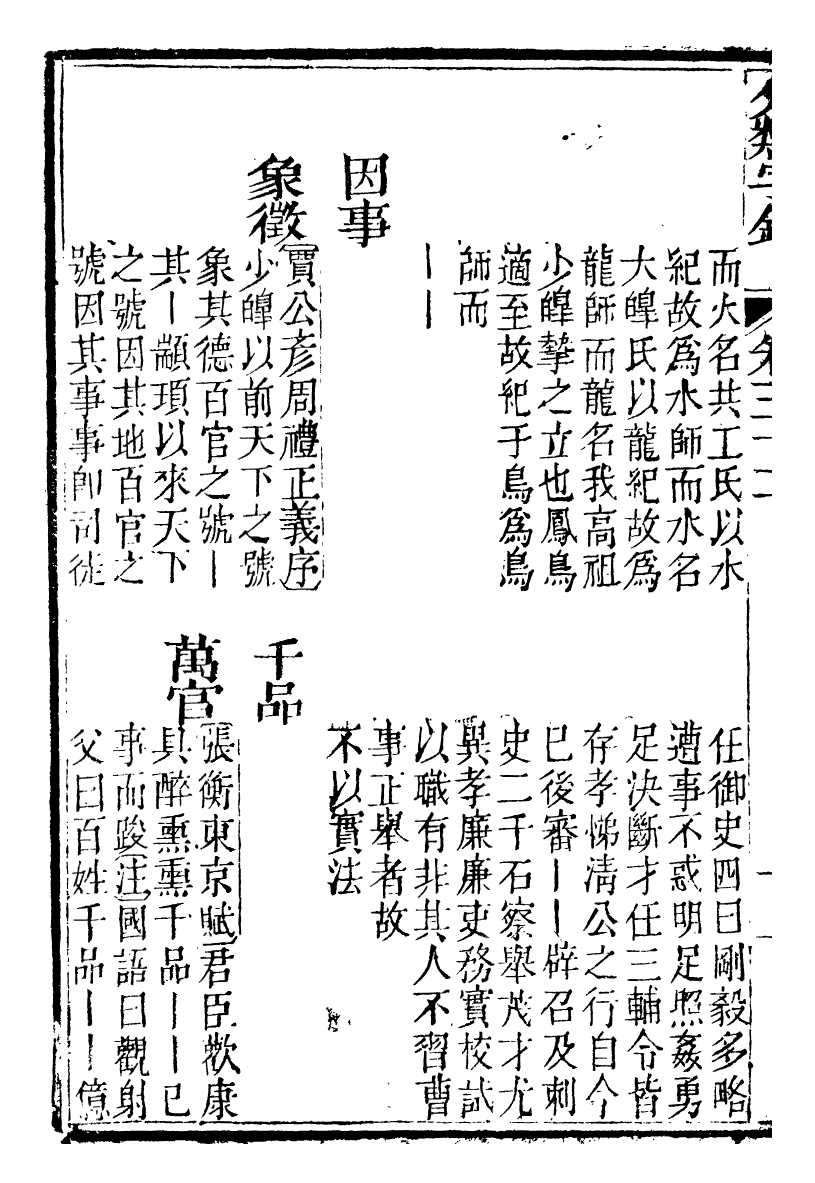 分類字錦 卷三十二
而火名共工氏以水
紀故爲水師而水名
大皥氏以龍紀故爲
龍師而龍名我高祖
少皥摯之立也鳳鳥
適至故紀于鳥爲鳥
師而
丨丨
因事
象徵
賈公彥周禮正義序
少皥以前天下之號
象其德百官之號丨
其丨顓頊以來天下
之號因其地百官之
號因其事事卽司徒
任御史四曰剛毅多略
遭事不惑明足照姦勇
足決斷才任三輔令皆
存孝悌清公之行自今
已後審丨丨辟召及刺
史二千石察舉茂才尤
異孝廉廉吏務實校試
以職有非其人不習曹
事正舉者故
不以實法
千品
萬官
張衡東京賦君臣歡康
具醉熏熏千品丨丨已
事而踆注國語曰觀射
父曰百姓千品丨丨億